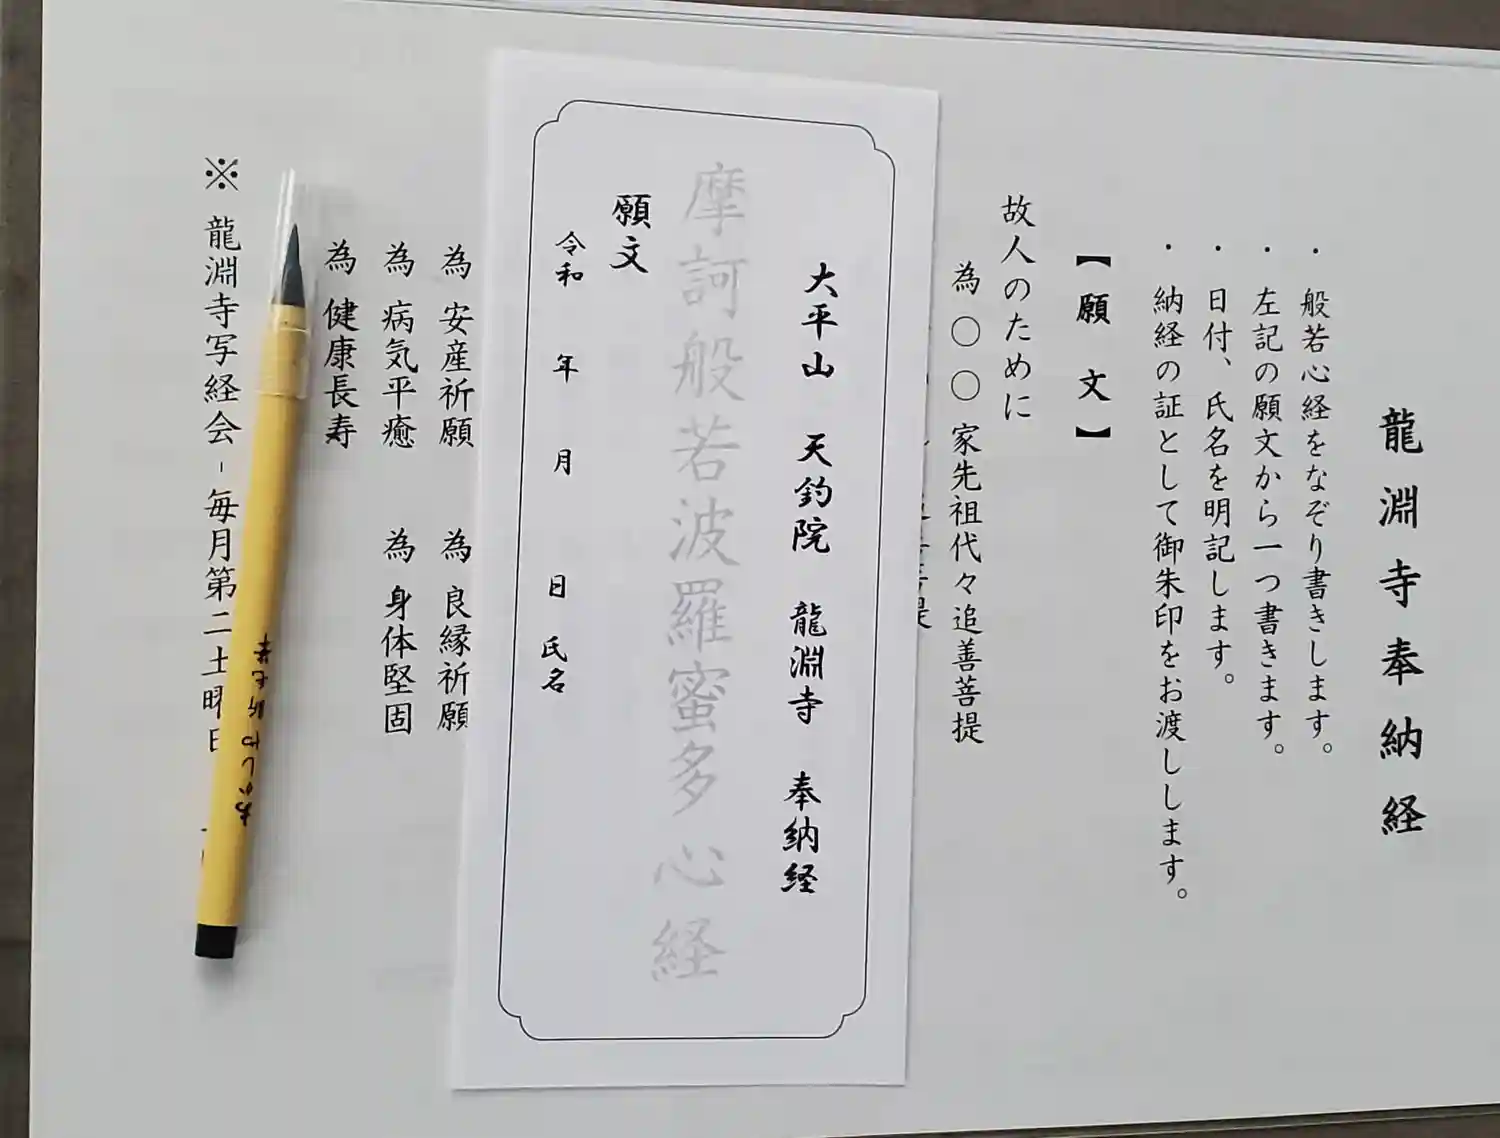 龍淵寺奉納経
・般若心経をなぞり書きします。
・左記の願文から一つ書きます。
・日付、氏名を明記します。
・納経の証として御朱印をお渡しします。
【願文】
故人のために
為 〇〇家先祖代々追善菩提
大平山 天釣院 龍淵寺 奉納経
摩訶般若波羅蜜多心経
願文
令和 年 月 日 氏名
為 安産祈願 為 良縁祈願
為 病気平癒 為 身体堅固
為 健康長寿
※ 龍淵寺写経会-毎月第二土曜日
あかしや新毛筆